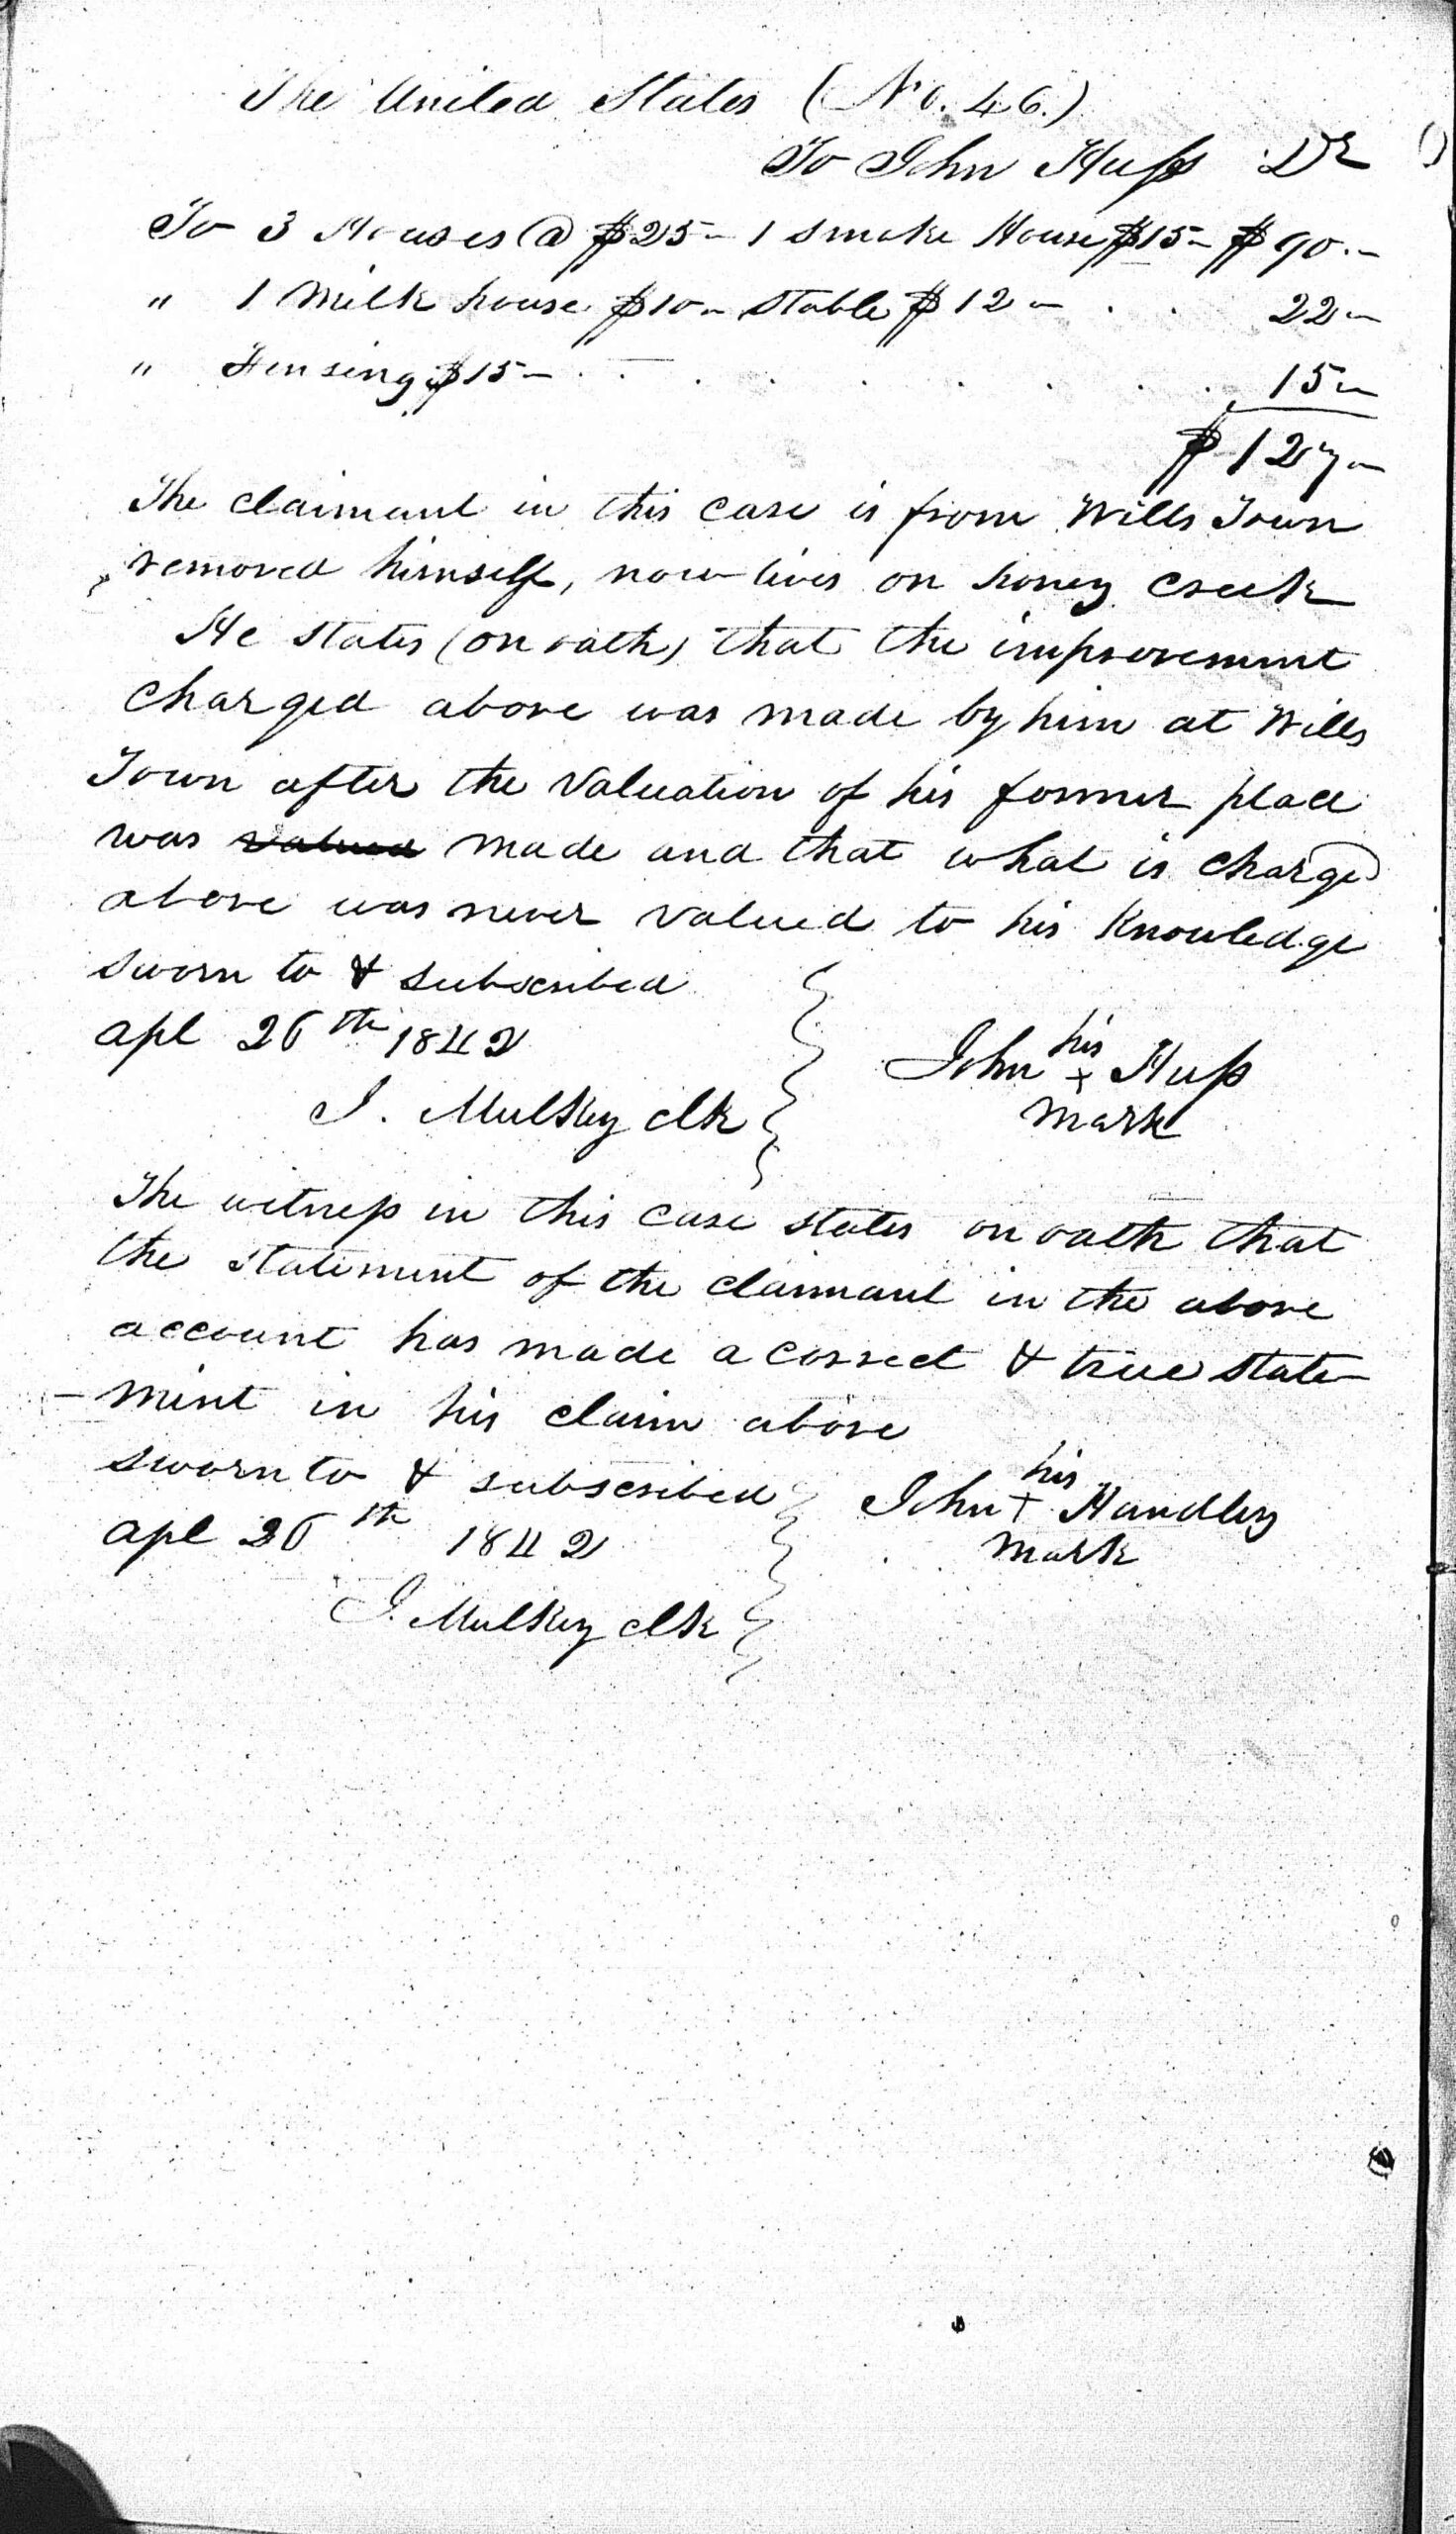 The United States (No. 46.)
To John Huss Dr
To 3 Houses @ $25- 1 Smoke House $15- $90.-
" 1 Milk house $10- Stable $12- . . 22-
" Fensing $15- . . . . . . . . 15-
$127-
The claimant in this case is from Wills Town
removed himself, now lives on honey creek
He states (on oath) that the improvement
charged above was made by him at Wills
Town after the Valuation of his former place
was valued made and that what is charged
above was never valued to his Knowledge
sworn to & subscribed
apl 26th 1842
his
John x Huss
mark
J. Mulkey clk
The witness in this case states on oath that
the statement of the claimant in the above
account has made a correct & true state-
-ment in his claim above
sworn to & subscribed
his
John + Handley
mark
apl 26th 1842
J. Mulkey clk